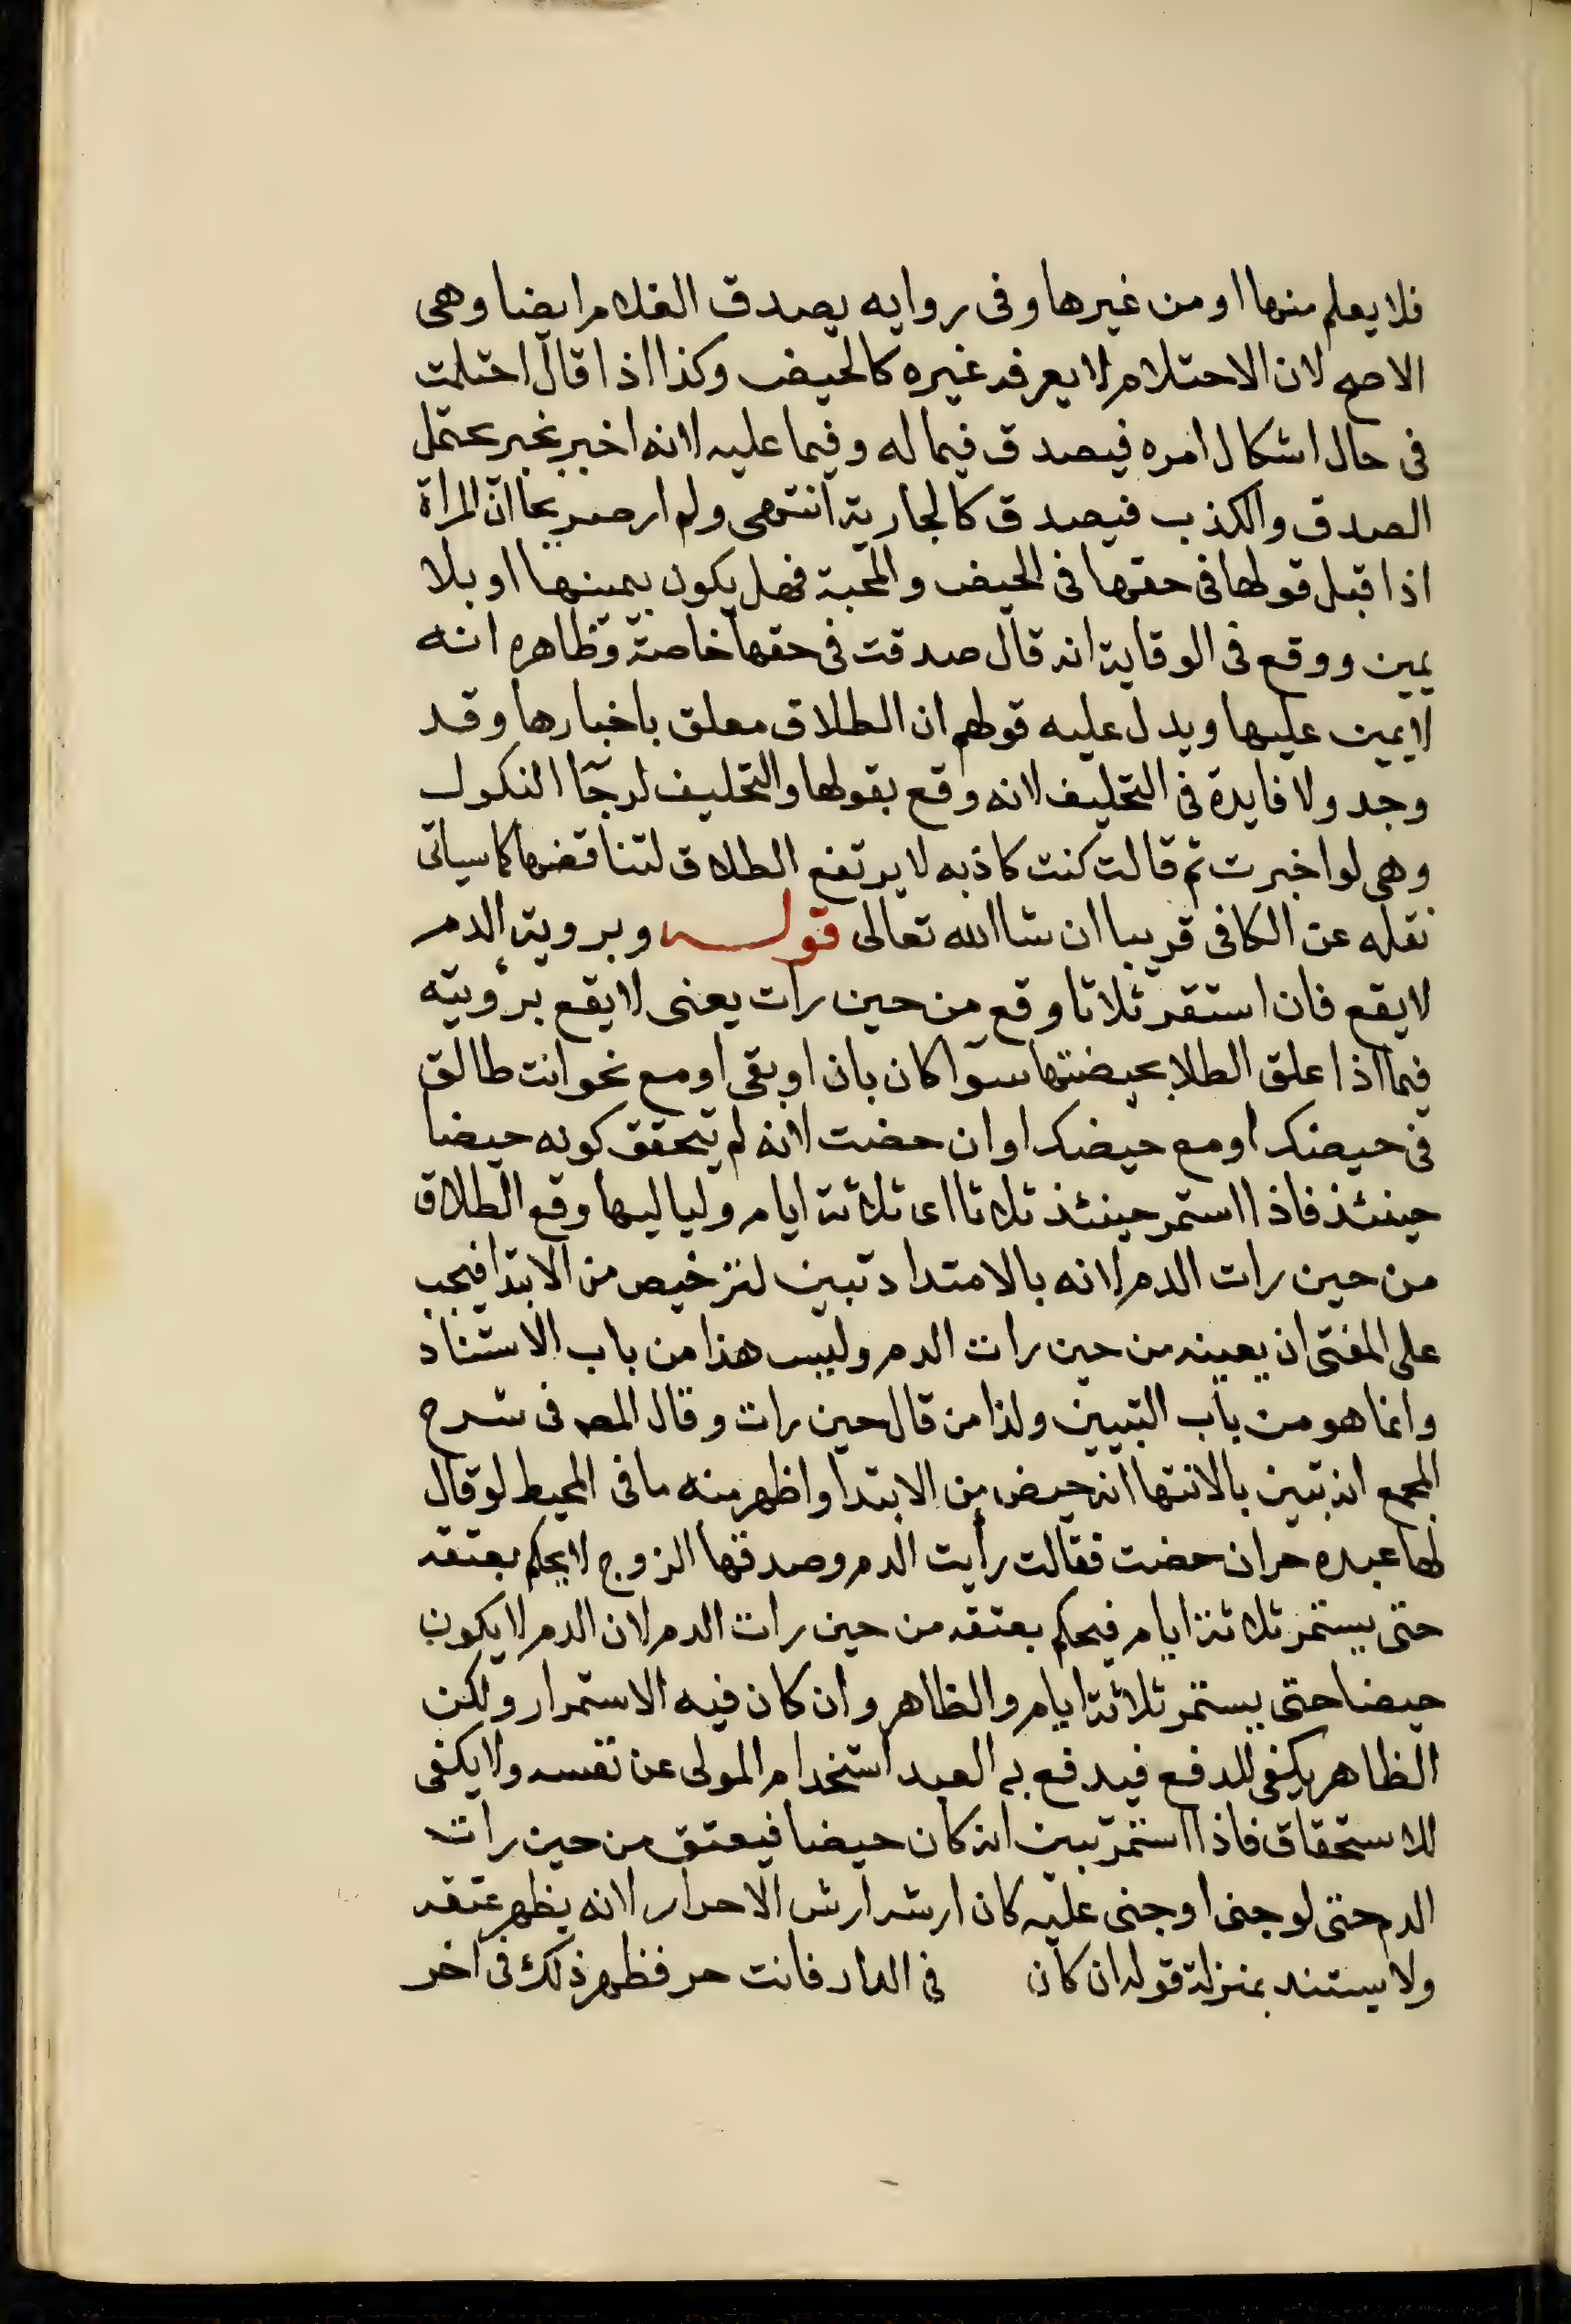 فلا يعلم منها او من غيرها وفى روايه يصدق الغلام ايضا وهى
الاصح لان الاحتلام لا يعرفه غيره كالحيض وكذا اذا قال احتلمت
فى حال اشكال امره فيصدق فيما له وفيما عليه لانه اخبر بخبر يحتمل
الصدق والكذب فيصدق كالجارية انتهى ولم ار صريحا ان المراة
اذا قبل قولها فى حقها فى الحيض والمحبة فهل يكون بيمينها او بلا
يمين ووقع فى الوقاية انه قال صدقت فى حقها خاصة وظاهره انه
لا يمين عليها ويدل عليه قولهم ان الطلاق معلق باخبارها وقد
وجد ولا فايدة فى التحليف لانه وقع بقولها والتحليف لرجآ النكول
وهى لو اخبرت ثم قالت كنت كاذبه لا يرتفع الطلاق لتناقضها كما سياتى
نقله عن الكافى قريبا ان شا الله تعالى قوله وبروية الدم
لا يقع فان استقر ثلاثا وقع من حين رات يعنى لا يقع برؤيته
فيما اذا علق الطلا بحيضتها سوآ كان بان او بقى او مع نحو انت طالق
فى حيضك او مع حيضك او ان حضت لانه لم يتحقق كونه حيضا
حينئذ فاذا استمر حينئذ ثلاثا اى ثلاثة ايام ولياليها وقع الطلاق
من حين رات الدم لانه بالامتداد تبين انه حيض من الابتدا فيجب
على المفتى ان يعينه من حين رات الدم وليس هذا من باب الاستناد
وانما هو من باب التبيين ولذا من قال حين رات وقال المصـ فى شرح
المجمع انه تبين بالانتها انه حيض من الابتدا واظهر منه ما فى المحيط لو قال
لها عبده حر ان حضت فقالت رأيت الدم وصدقها الزوج لا يحكم بعتقه
حتى يستمر ثلاثة ايام فيحكم بعتقه من حين رات الدم لان الدم لا يكون
حيضا حتى يستمر ثلاثة ايام والظاهر وان كان فيه الاستمرار ولكن
الظاهر يكفى للدفع فيدفع به العبد استخدام المولى عن نفسه ولا يكفى
للاستحقاق فاذا استمر تبين انه كان حيضا فيعتق من حين رات
الدم حتى لو جنى او جنى عليه كان ارشه ارش الاحرار لانه يظهر عتقه
ولا يستند بمنزلة قوله ان كان فى الدار فانت حر فظهر ذلك فى اخر